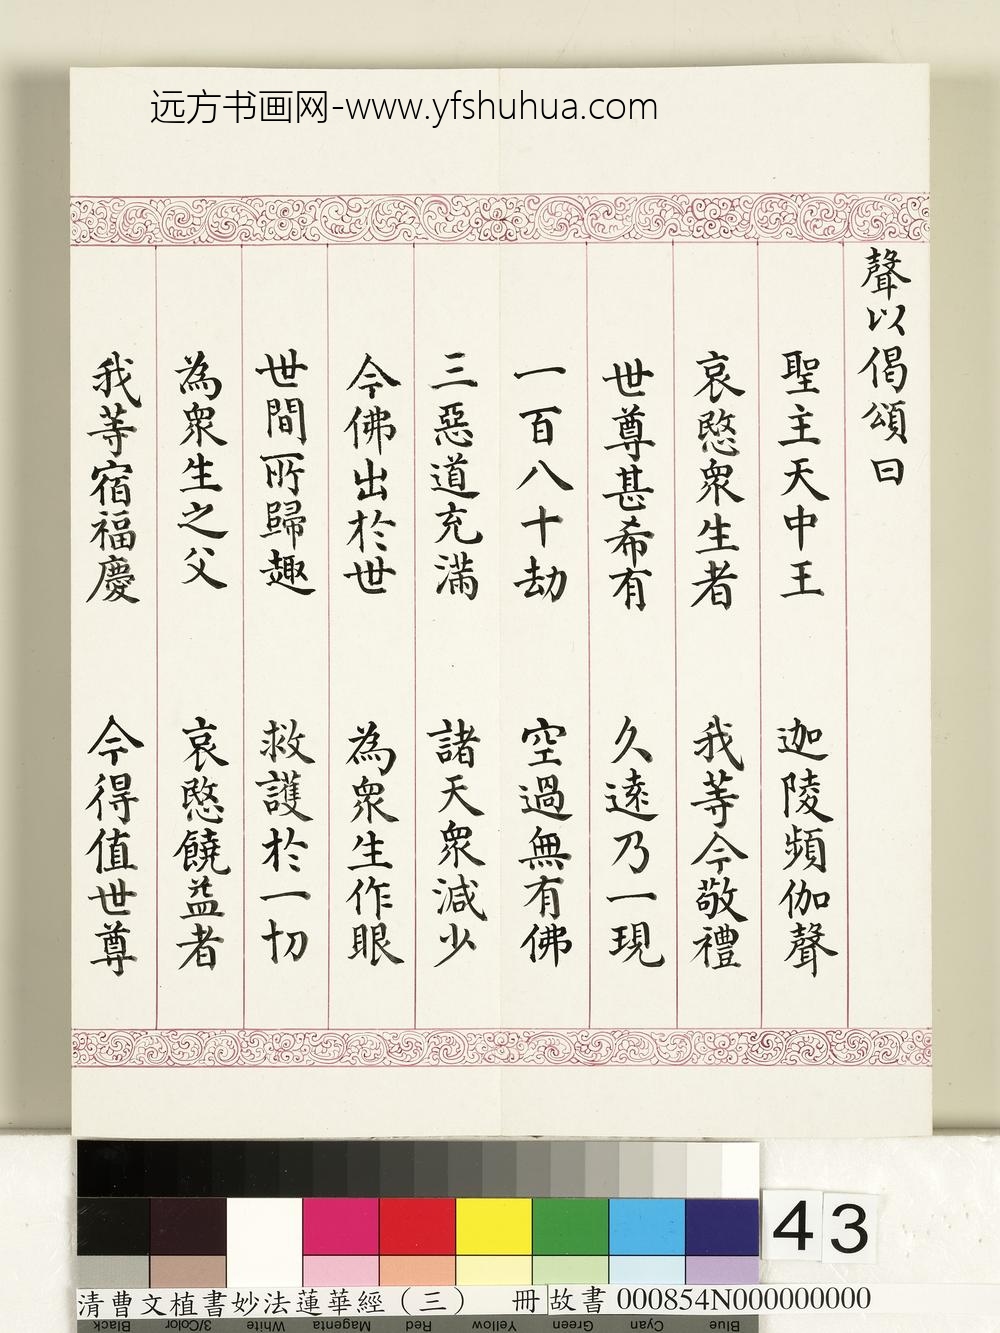 远方书画网-www.yfshuhua.com
聲以偈頌曰
聖主天中王　迦陵頻伽聲
哀愍衆生者　我等今敬禮
世尊甚希有　久遠乃一現
一百八十劫　空過無有佛
三惡道充滿　諸天衆減少
今佛出於世　為衆生作眼
世間所歸趣　救護於一切
為衆生之父　哀愍饒益者
我等宿福慶　今得值世尊
43
清曹文植書妙法蓮華經（三）　冊 故書 000854N000000000
Black 3/Color White Magenta Red Yellow Green Cyan Blue